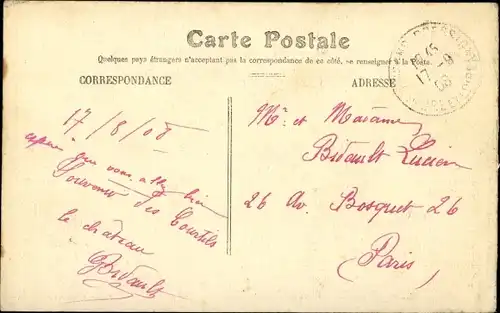 Carte Postale
Quelques pays étrangers n'acceptant pas la correspondance de ce côté, se renseigner à la Poste.
CORRESPONDANCE
ADRESSE
17/8/08
espère que vous allez bien
Souvenir des Courtils
le château
GBidault
Mr. et Madame
Bidault Lucien
26 Av. Bosquet 26
Paris
17 -8
08